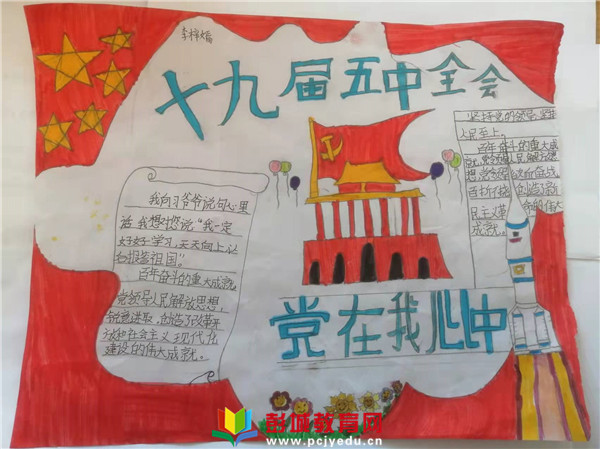 李梓嫣
十九届五中全会
坚持党的领导,坚持
人民至上。
百年奋斗的重大成
就,党领导人民解放思
想
百折不挠
民主义革命的伟大
成就。
我向习爷爷说句心里
话,我想对您说"我一定
好好学习,天天向上,以
后报答祖国"。
百年奋斗的重大成就,
党领导人民解放思想,
锐意进取,创造了改革开
放和社会主义现代化
建设的伟大成就。
党在我心中
彭城教育网
www.pcjyedu.cn